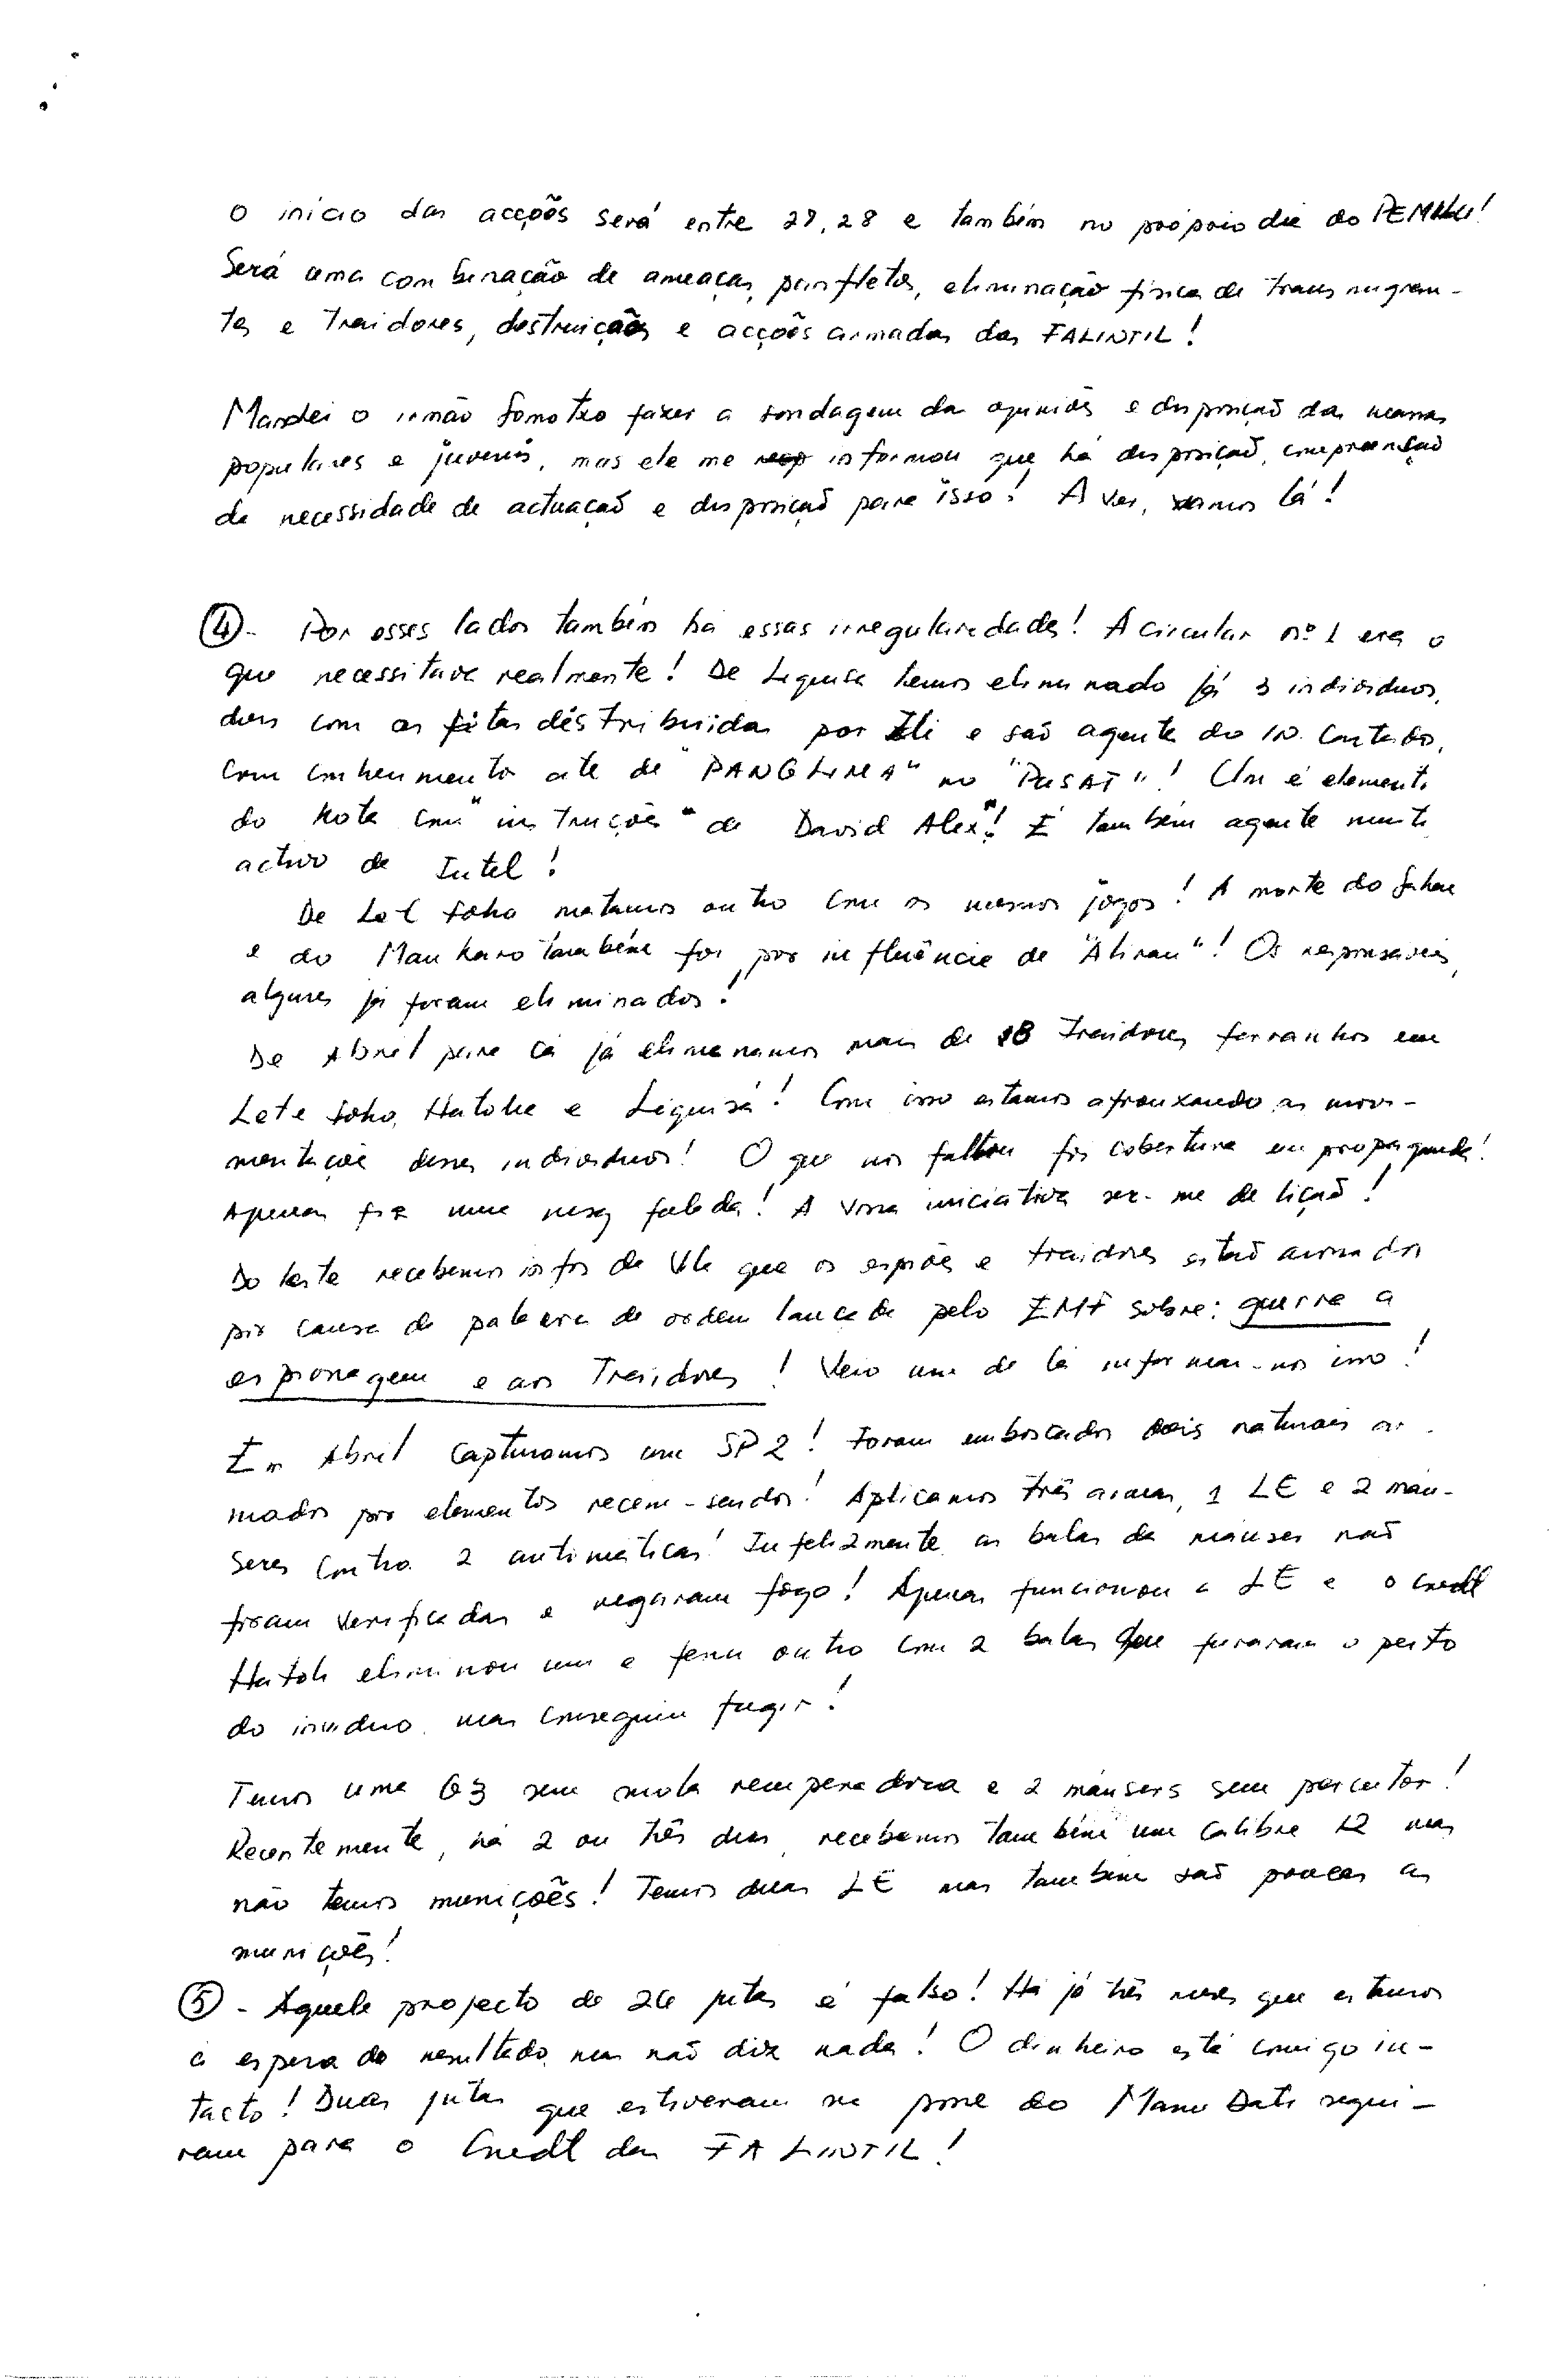 O início das acções será entre 27, 28 e também no próprio dia do PEMILU!
Será uma combinação de ameaças, panfletos, eliminação física de transmigran-
tes e traidores, destruição e acções armadas das FALINTIL!
Mandei o irmão Somotxo fazer a sondagem da opinião e disposição das massas
populares e juvenis, mas ele me informou que há disposição, compreensão
da necessidade de actuação e disposição para isso! A ver, vamos lá!
④- Por esses lados também há essas irregularidades! A circular nº 1 era o
que necessitava realmente! De Liquisa temos eliminado já 3 indivíduos,
dois com as fitas distribuidas por Eli e são agente do IN. Contacto,
com conhecimento até de "PANGLIMA" no "PUSAT"! Um é elemento
do Kota com "instruções" de David Alex"! É também agente muito
activo de Intel!
De Letefoho matamos outro com os mesmos jogos! A morte do
e do também foi por influência de "Aliran"! Os responsáveis,
alguns já foram eliminados!
De Abril para cá já eliminamos mais de 18 traidores ferranhos em
Letefoho, Hatolia e Liquisá! Com isso estamos afrouxando as movi-
mentações desses indivíduos! O que nos faltou foi cobertura em propaganda!
Apenas fiz uma falada! A vossa iniciativa ser-me de lição!
Do leste recebemos infos de que os espiões e traidores estão armados
por causa da palavra de ordem lançada pelo EMF sobre: guerra a
espionagem e aos Traidores! Veio um de lá informar-nos isso!
Em Abril capturamos um SP2! Foram emboscados dois naturais ar-
mados por elementos recem-saidos! Aplicamos três armas, 1 LE e 2 mau-
seres contra 2 automáticas! Infelizmente as balas da mauser não
foram verificadas e negaram fogo! Apenas funcionou a LE e o Cmdt
Hatoli eliminou um e feriu outro com 2 balas que furaram o peito
do inviduo, mas conseguiu fugir!
Temos uma G3 sem mola recuperadora e 2 mausers sem percutor!
Recentemente, há 2 ou três dias, recebemos também um calibre 12 mas
não temos munições! Temos duas LE mas também são poucas as
munições!
⑤ - Aquele projecto de 26 jutas é falso! Há já três meses que estamos
á espera do resultado, mas não diz nada! O dinheiro está comigo in-
tacto! Duas jutas que estiveram na posse do Manu Dati segui-
ram para o Cmdt das FALINTIL!